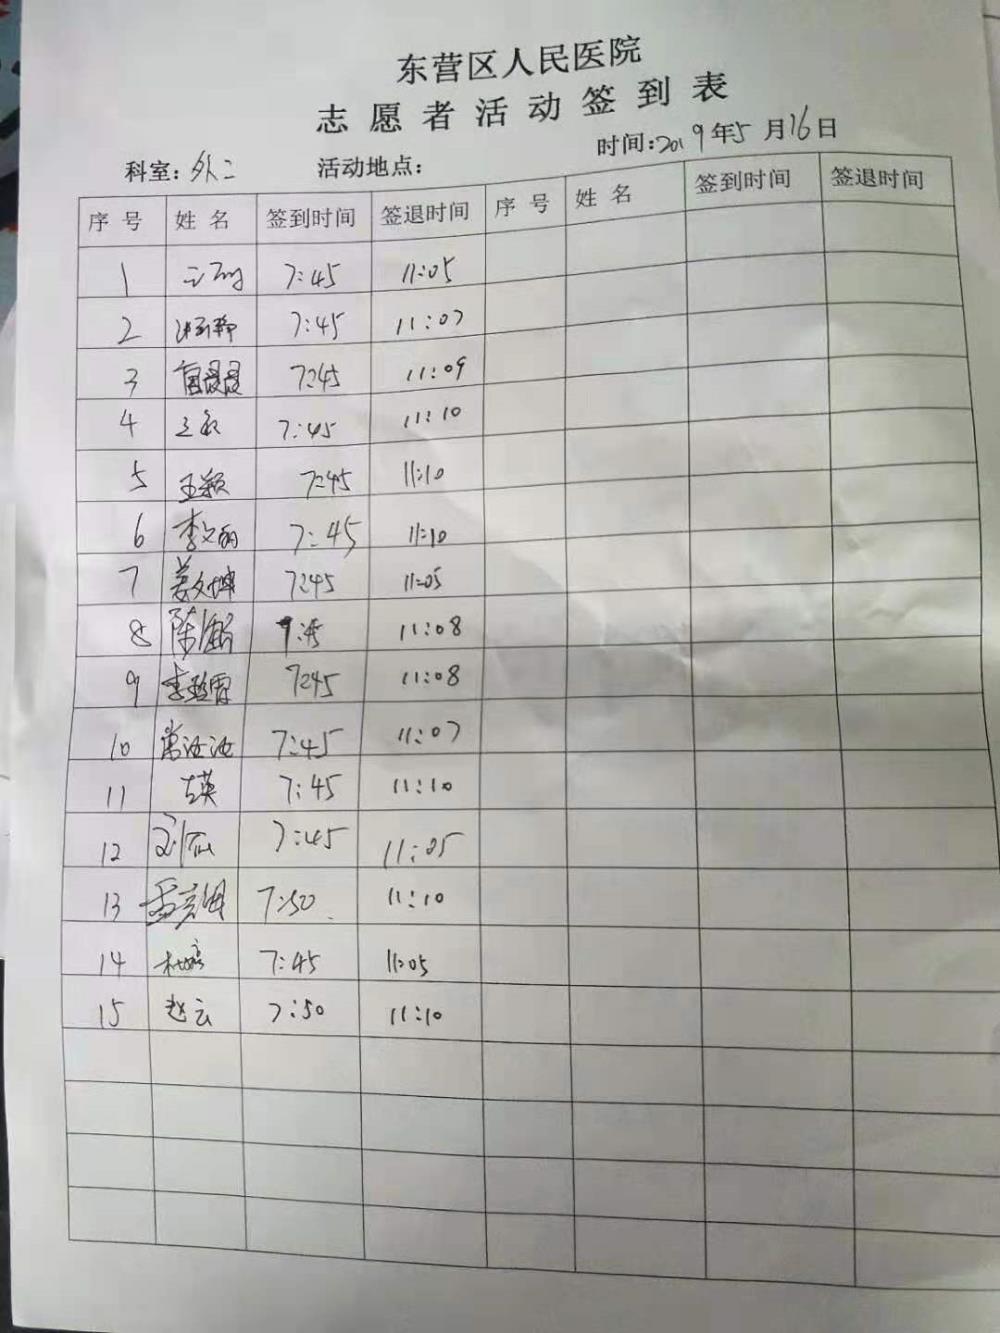 东营区人民医院
志愿者活动签到表
科室：外二 活动地点： 时间：2019年5月16日
序号 姓名 签到时间 签退时间 序号 姓名 签到时间 签退时间
1 7:45 11:05
2 7:45 11:07
3 7:45 11:09
4 7:45 11:10
5 王颖 7:45 11:10
6 李文丽 7:45 11:10
7 姜文坤 7:45 11:05
8 陈 7:45 11:08
9 李 7:45 11:08
10 7:45 11:07
11 左英 7:45 11:10
12 刘 7:45 11:05
13 7:50 11:10
14 杜 7:45 11:05
15 赵云 7:50 11:10